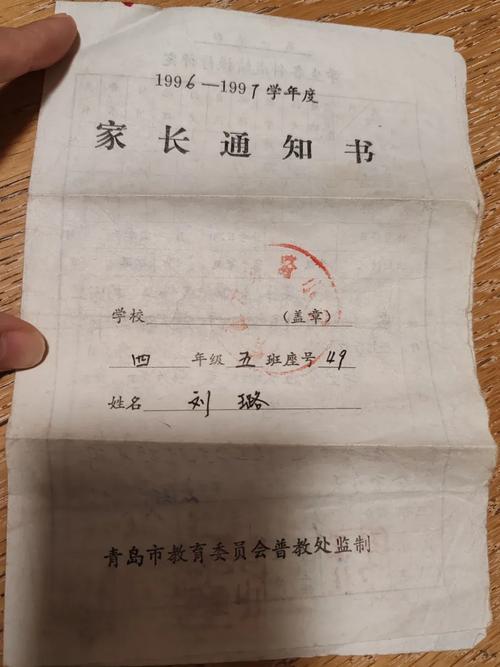 1996—1997学年度
家长通知书
学校 (盖章)
四年级五班座号49
姓名 刘璐
青岛市教育委员会普教处监制